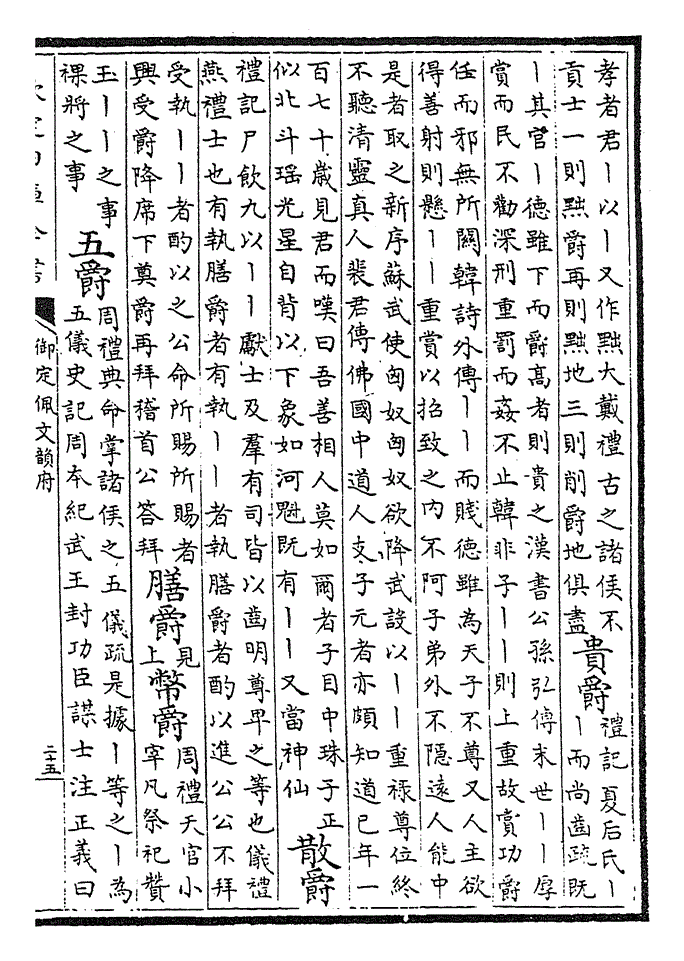 孝者君丨以丨又作黜大戴禮古之諸侯不
貢士一則黜爵再則黜地三則削爵地俱盡
貴爵
禮記夏后氏丨
丨而尚齒疏既
丨其官丨德雖下而爵髙者則貴之漢書公孫弘傳末世丨丨厚
賞而民不勸深刑重罰而姦不止韓非子丨丨則上重故賞功爵
任而邪無所關韓詩外傳丨丨而賤德雖為天子不尊又人主欲
得善射則懸丨丨重賞以招致之内不阿子弟外不隱遠人能中
是者取之新序蘇武使匈奴匈奴欲降武設以丨丨重禄尊位終
不聽清靈真人裴君傳佛國中道人支子元者亦頗知道已年一
百七十嵗見君而嘆曰吾善相人莫如爾者子目中珠子正
似北斗瑤光星自背以下象如河魁既有丨丨又當神仙
散爵
禮記尸飲九以丨丨獻士及羣有司皆以齒明尊卑之等也儀禮
燕禮士也有執膳爵者有執丨丨者執膳爵者酌以進公公不拜
受執丨丨者酌以之公命所賜所賜者
興受爵降席下奠爵再拜稽首公答拜
膳爵
見
上
幣爵
周禮天官小
宰凡祭祀贊
玉丨丨之事
祼將之事
五爵
周禮典命掌諸侯之五儀疏是據丨等之丨為
五儀史記周本紀武王封功臣謀士注正義曰
御定佩文韻府
二十五